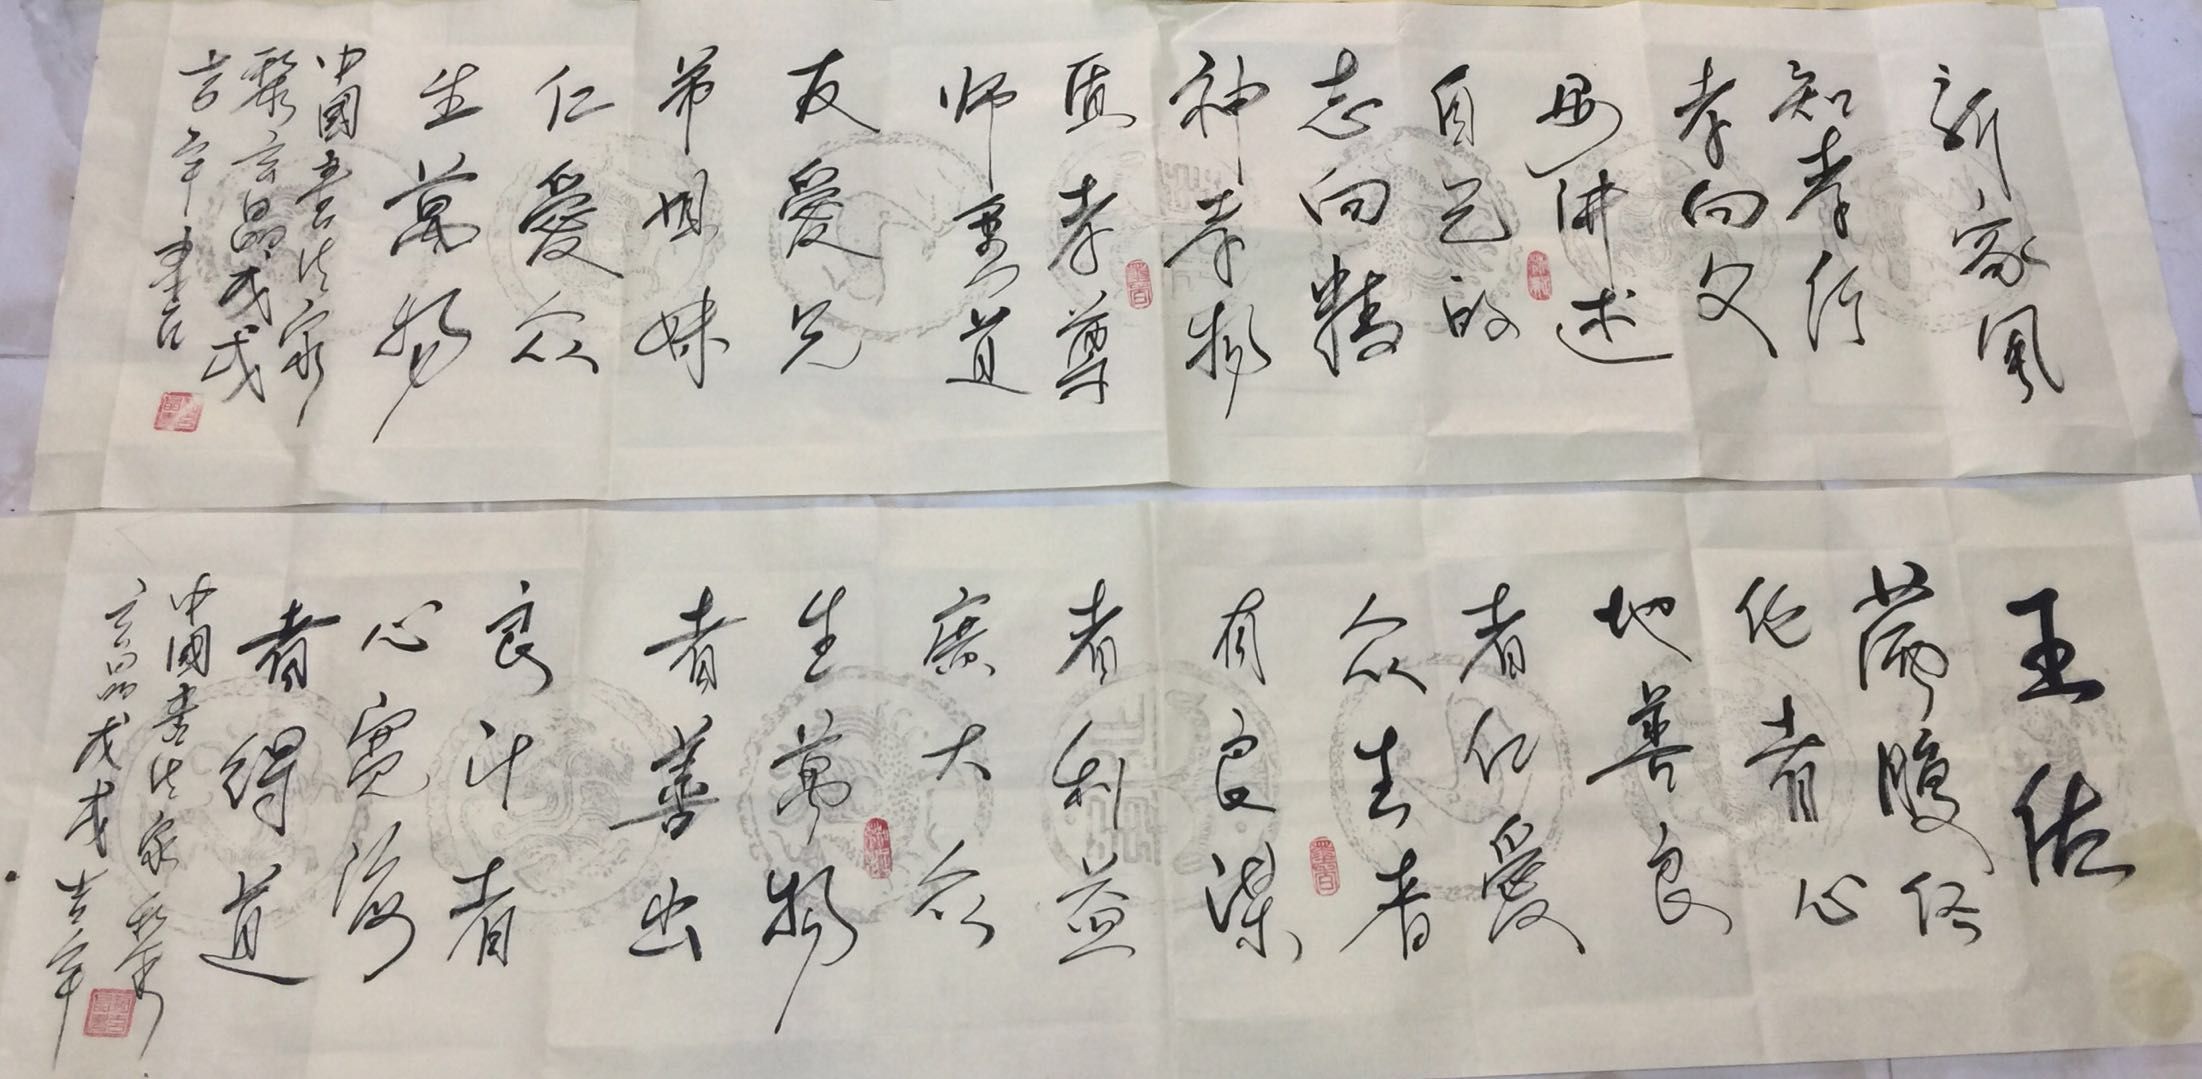 新家风
知孝行
孝向父
母讲述
自己的
志向精
神孝物
质孝尊
师重道
友爱兄
弟姐妹
仁爱众
生万物
中国书法家
言晶戊戌
吉年书
王佑
者心
地善良
者仁爱
众生者
有良
者利益
广大众
生万物
者善出
良计者
心宽海
者得道
中国书法家
言晶戊戌吉年